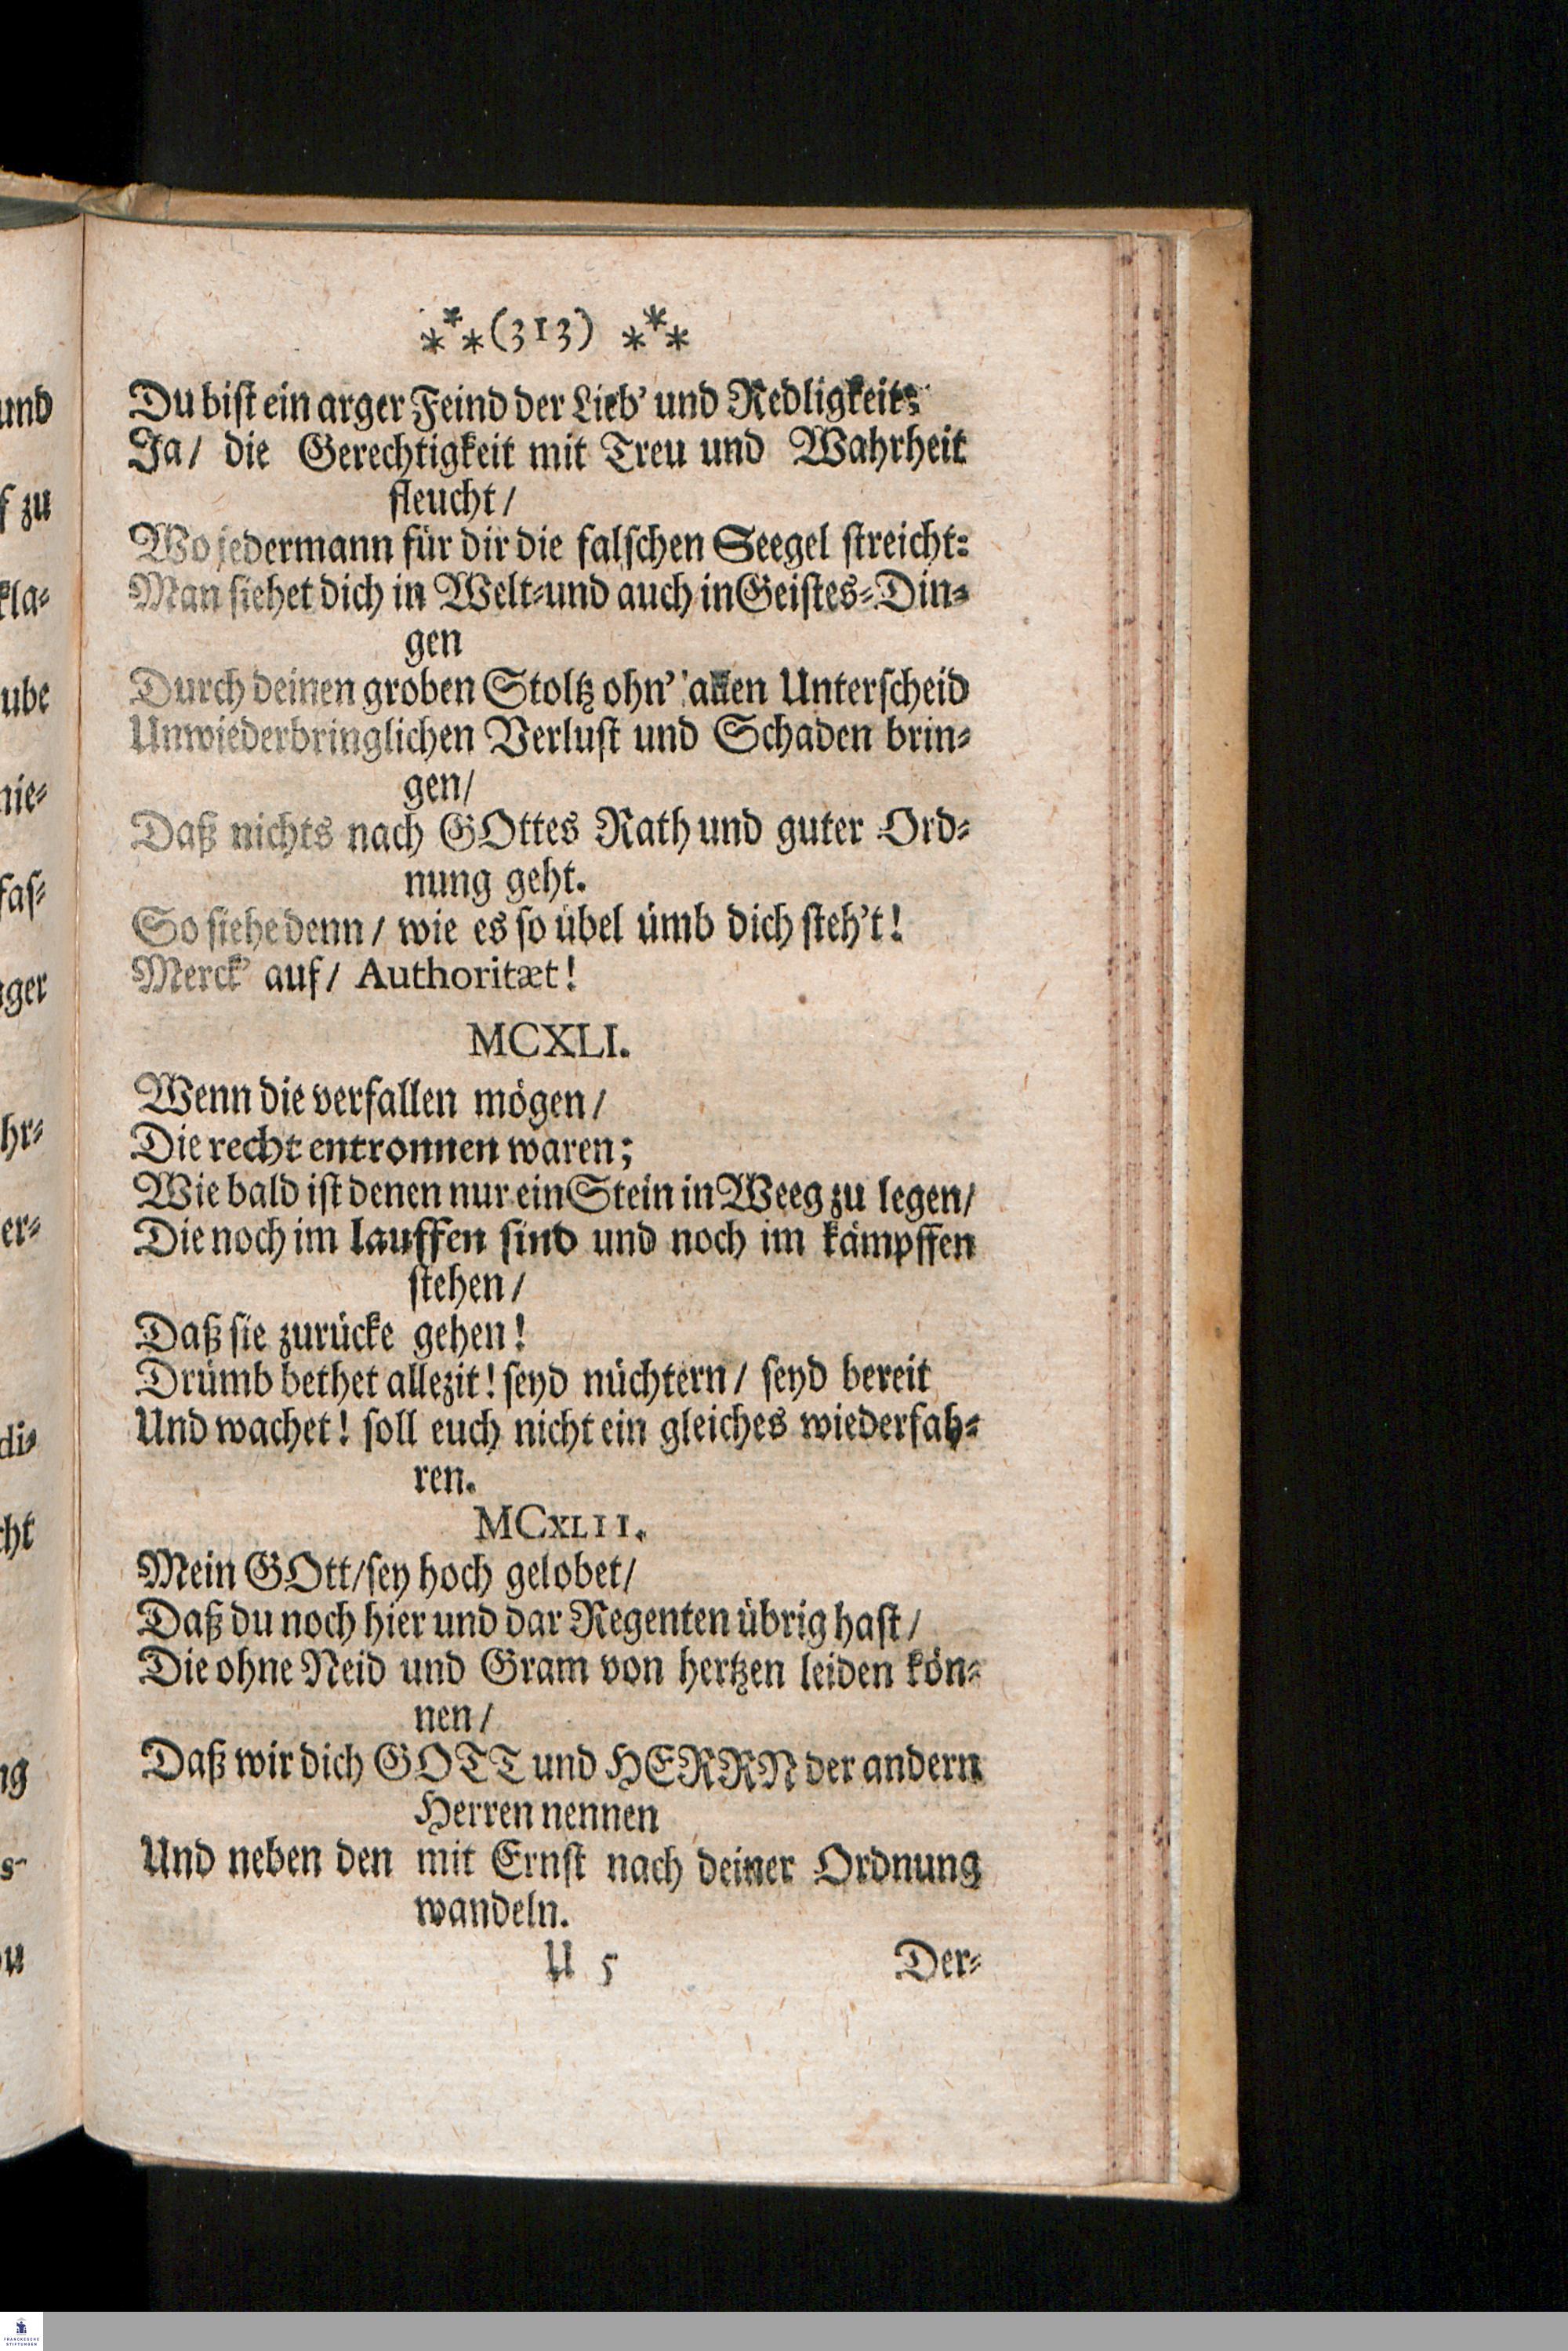 ⁎*⁎(313) ⁎*⁎
Du bist ein arger Feind der Lieb' und Redligkeit:
Ja/ die Gerechtigkeit mit Treu und Wahrheit
fleucht/
Wo jedermann für dir die falschen Seegel streicht:
Man siehet dich in Welt-und auch in Geistes-Din-
gen
Durch deinen groben Stoltz ohn' allen Unterscheid
Unwiederbringlichen Verlust und Schaden brin-
gen/
Daß nichts nach GOttes Rath und guter Ord-
nung geht.
So siehe denn/ wie es so übel ümb dich steh't!
Merck' auf/ Authoritæt!
MCXLI.
Wenn die verfallen mögen/
Die recht entronnen waren;
Wie bald ist denen nur ein Stein in Weeg zu legen/
Die noch im lauffen sind und noch im kämpffen
stehen/
Daß sie zurücke gehen!
Drümb bethet allezit! seyd nüchtern/ seyd bereit
Und wachet! soll euch nicht ein gleiches wiederfah-
ren.
MCXLII.
Mein GOtt/sey hoch gelobet/
Daß du noch hier und dar Regenten übrig hast/
Die ohne Neid und Gram von hertzen leiden kön-
nen/
Daß wir dich GOTT und HERRN der andern
Herren nennen
Und neben den mit Ernst nach deiner Ordnung
wandeln.
U 5 Der-
und
f zu
kla-
ube
nie-
fas-
ger
hr-
er-
di-
cht
ng
s-
u
FRANCKESCHE
STIFTUNGEN